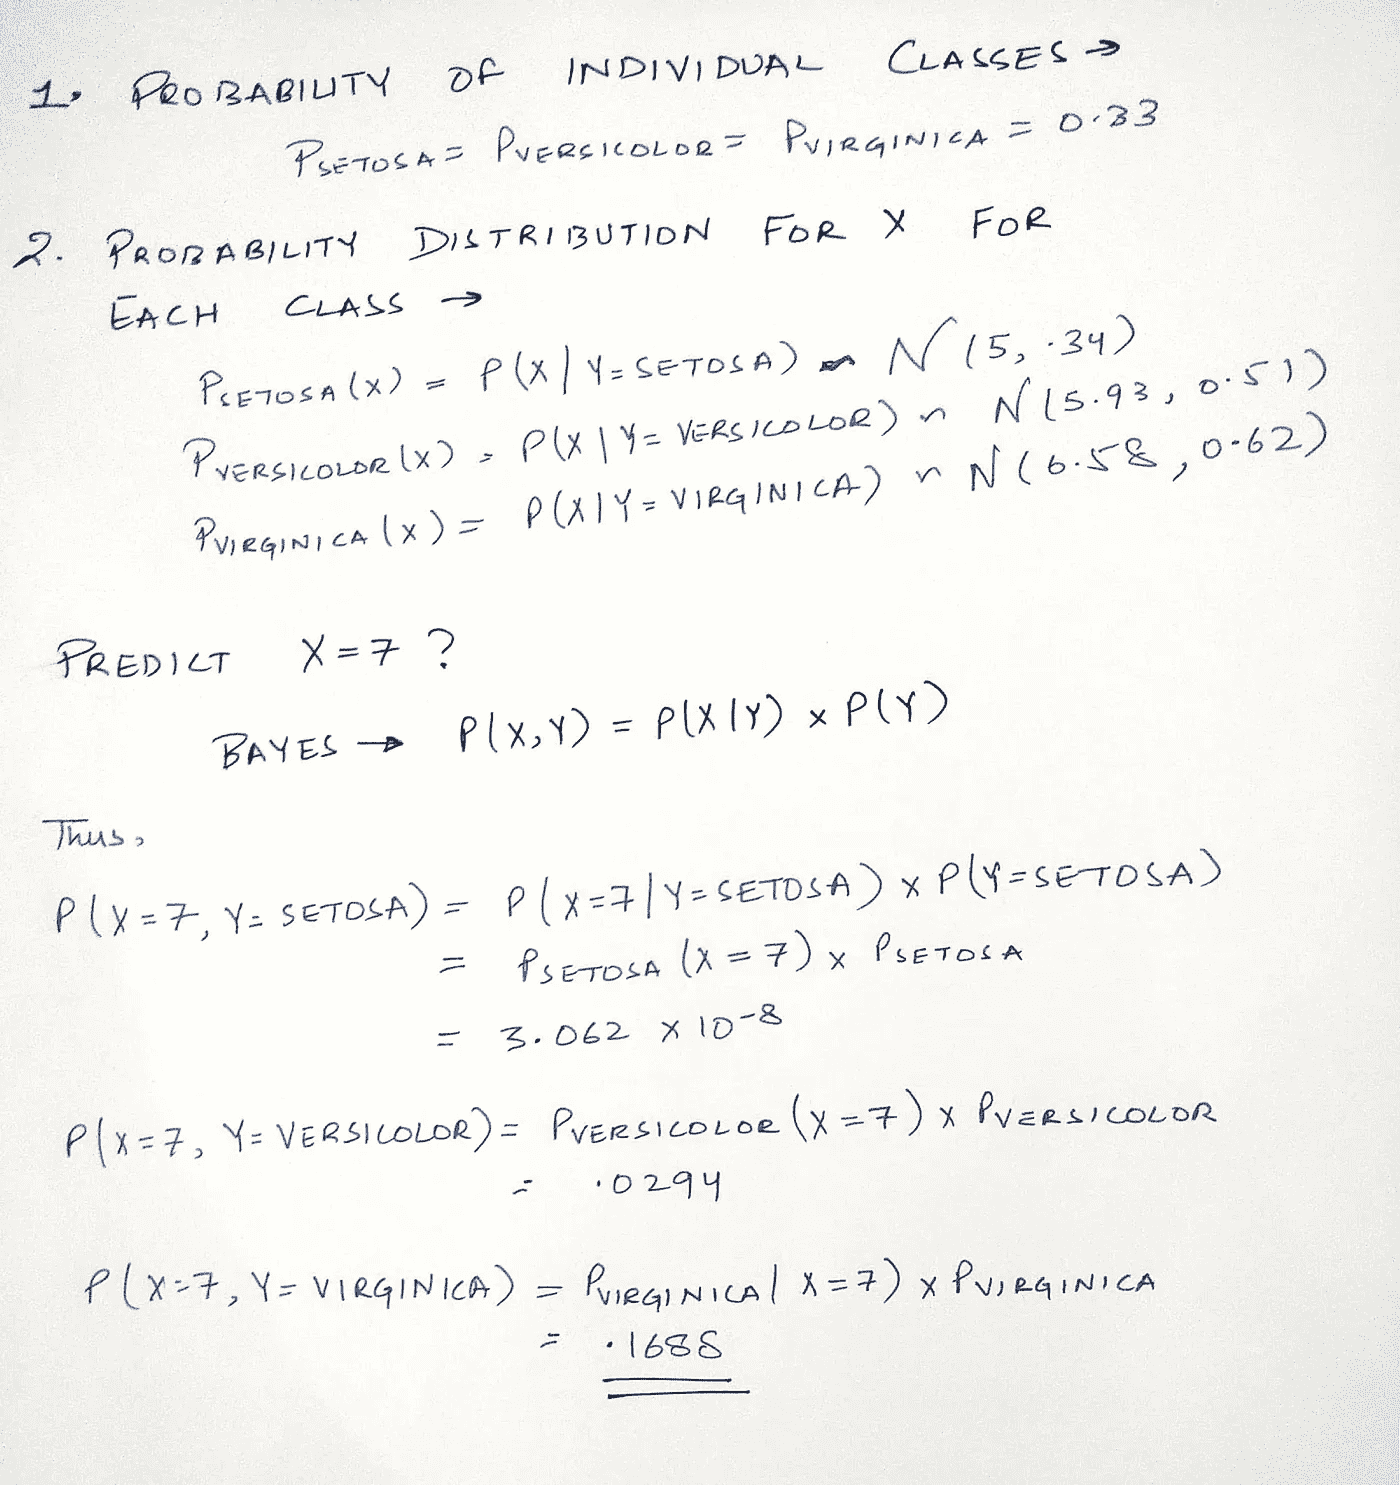 1. PROBABILITY OF INDIVIDUAL CLASSES →
PSETOSA = PVERSICOLOR = PVIRGINICA = 0.33
2. PROBABILITY DISTRIBUTION FOR X FOR
EACH CLASS →
PSETOSA(X) = P(X|Y=SETOSA) ~ N(5, .34)
PVERSICOLOR(X) = P(X|Y=VERSICOLOR) ~ N(5.93, 0.51)
PVIRGINICA(X) = P(X|Y=VIRGINICA) ~ N(6.58, 0.62)
PREDICT X=7 ?
BAYES → P(X,Y) = P(X|Y) x P(Y)
Thus,
P(X=7, Y=SETOSA) = P(X=7|Y=SETOSA) x P(Y=SETOSA)
= PSETOSA (X=7) x PSETOSA
= 3.062 x 10-8
P(X=7, Y=VERSICOLOR) = PVERSICOLOR (X=7) x PVERSICOLOR
= .0294
P(X=7, Y=VIRGINICA) = PVIRGINICA( X=7) x PVIRGINICA
= .1688